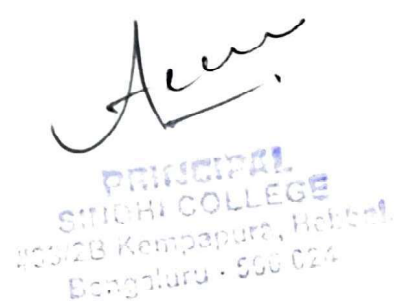 PRINCIPAL
SINDHI COLLEGE
#33/2B Kempapura, Hebbal,
Bengaluru - 560 024